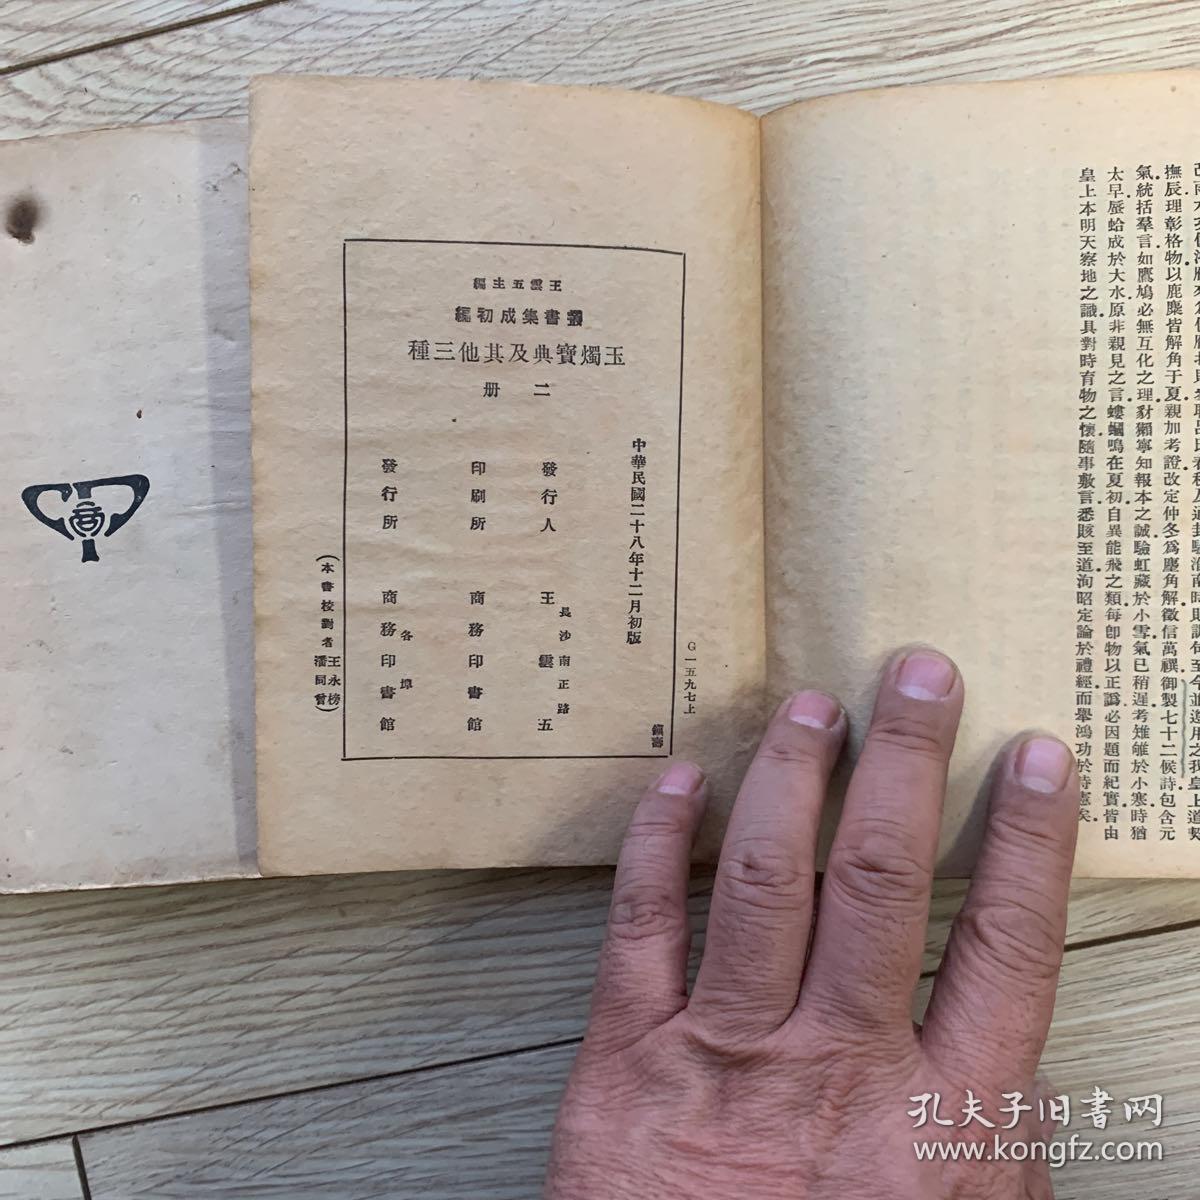 王雲五主編
叢書集成初編
玉燭寶典及其他三種
二册
中華民國二十八年十二月初版
發行人 王雲五
長沙南正路
印刷所 商務印書館
發行所 商務印書館
各埠
(本書校對者 王永榜
潘同曾)
G一五九七上
撫辰理彰格物以鹿麋皆解角于夏親加考證改定仲冬爲麈角解徵信萬禩御製七十二候詩包含元
氣統括羣言如鷹鳩必無互化之理豺獺寧知報本之誠驗虹藏於小雪氣已稍遲考雉雊於小寒時猶
太早蜃蛤成於大水原非親見之言螻蟈鳴在夏初自異能飛之類每卽物以正譌必因題而紀實皆由
皇上本明天察地之識具對時育物之懷隨事敷言悉賅至道洵昭定論於禮經而舉鴻功於時憲矣
孔夫子旧书网
www.kongfz.com